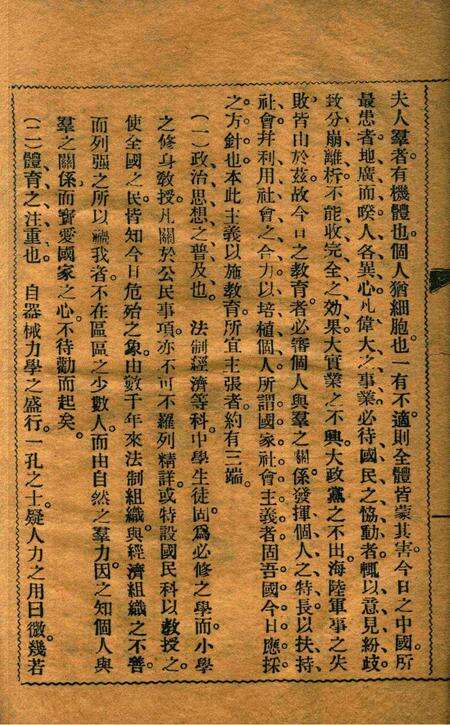 夫人羣者有機體也個人猶細胞也一有不適則全體皆蒙其害今日之中國所
最患者地廣而暌人各異心凡偉大之事業必待國民之恊動者輒以意見紛歧
致分崩離析不能收完全之效果大實業之不興大政黨之不出海陸軍事之失
敗皆由於茲故今日之教育者必審個人與羣之關係發揮個人之特長以扶持
社會幷利用社會之合力以培植個人所謂國家社會主義者固吾國今日應採
之方針也本此主義以施教育所宜主張者約有三端
（一）政治思想之普及也　法制經濟等科中學生徒固爲必修之學而小學
之修身敎授凡關於公民事項亦不可不羅列精詳或特設國民科以敎授之
使全國之民皆知今日危殆之象由數千年來法制組織與經濟組織之不善
而列强之所以謀我者不在區區之少數人而由自然之羣力因之知個人與
羣之關係而實愛國家之心不待勸而起矣
（二）體育之注重也　自器械力學之盛行一孔之士疑人力之用日微幾若